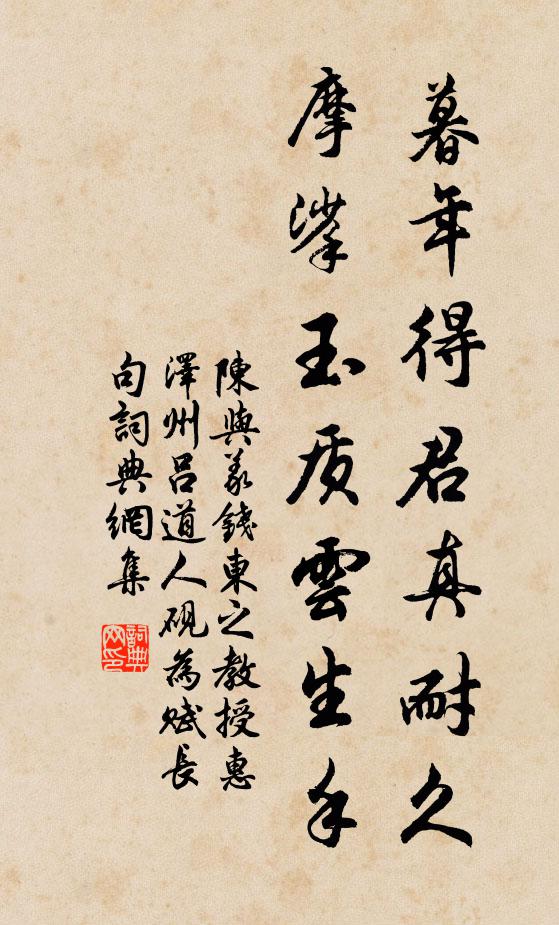 暮年得君真耐久
摩挲玉质雲生手
陳與義錢東之教授惠
澤州呂道人硯為賦長
句詞典網集
詞典網印